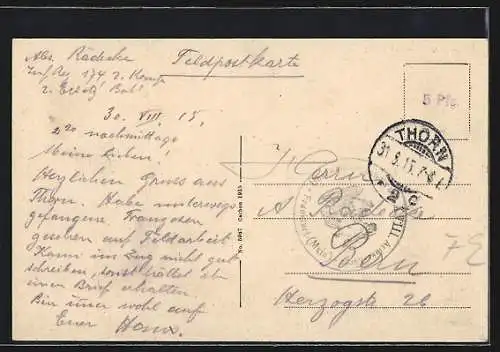 Abs. Rädecke
Inf. Reg 174 2. Komp
2. Ersatz Bat!
Feldpostkarte
5 Pfg.
30. VIII. 15.
2 20 nachmittags
Meine Lieben!
Herzlichen Gruss aus
Thorn. Habe unterwegs
gefangene Franzosen
gesehen auf Feldarbeit
Kann im Zug nicht gut
schreiben, sonst hättet ihr
einen Brief erhalten.
Bin immer wohl auf
Euer Hans.
THORN
31.8.15.
* 2 c
No. 5947 Cachen 1915
Herrn
A
Bern
Herzogstr 26